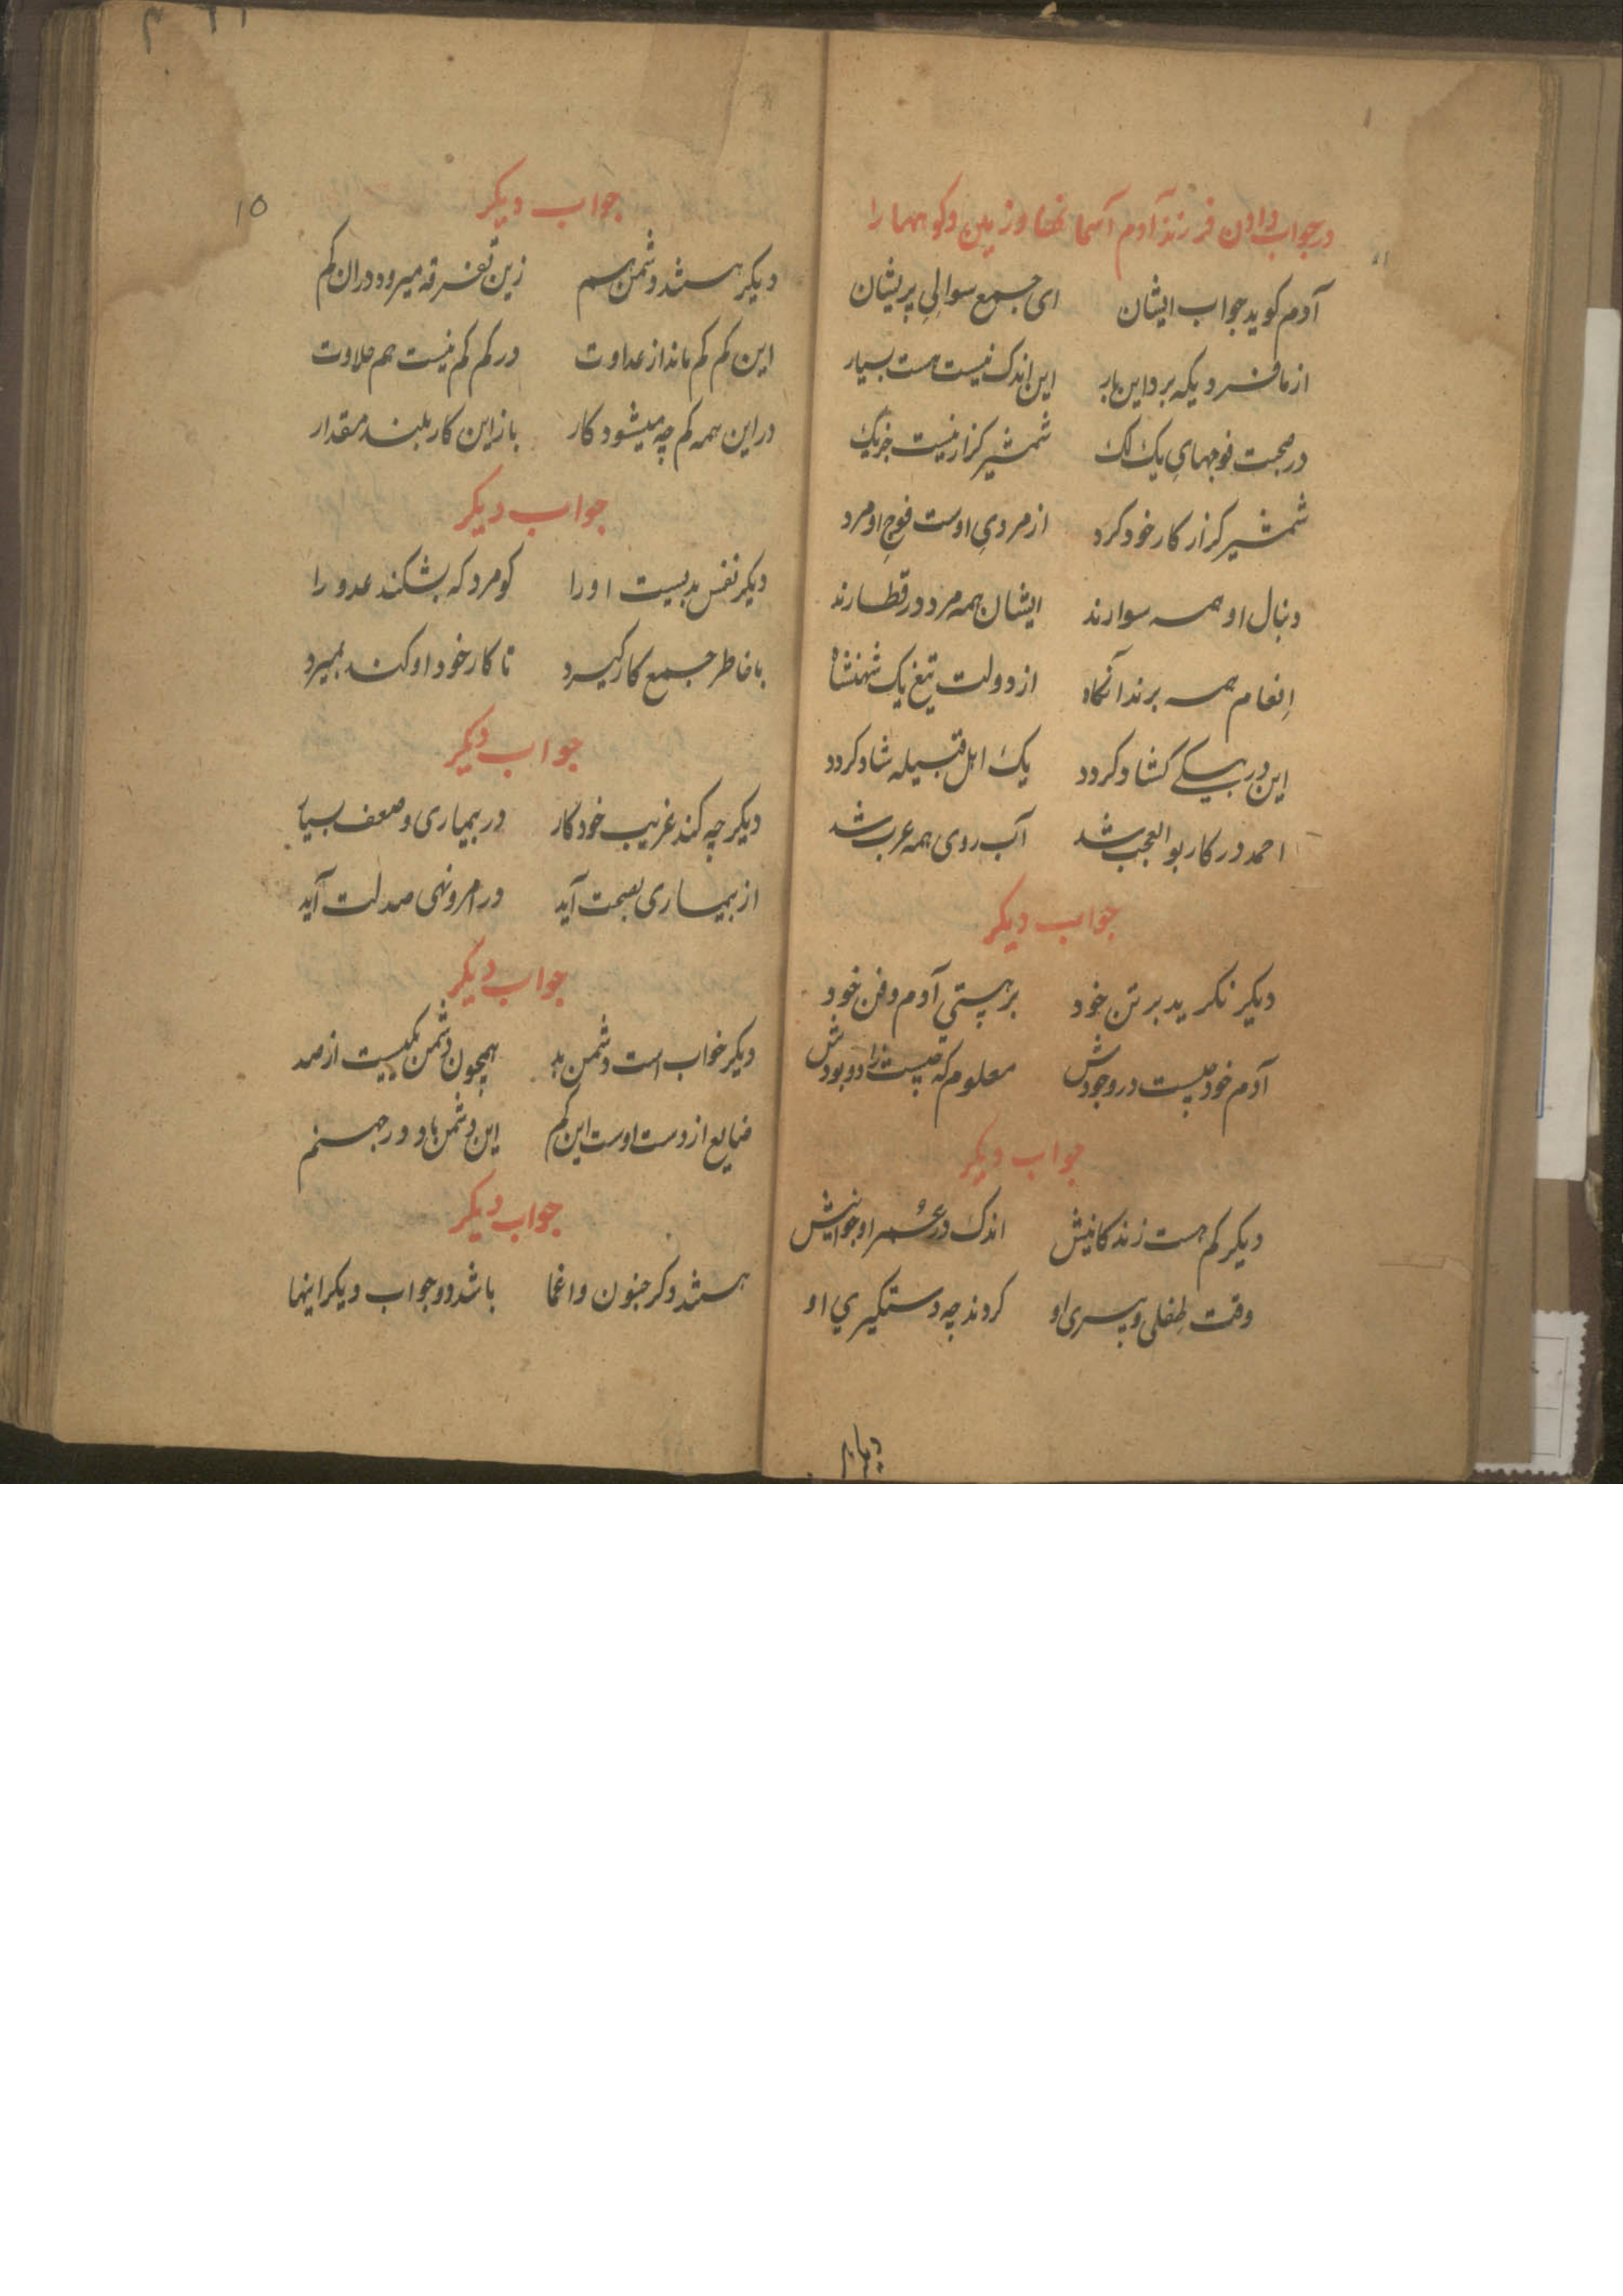 در جواب دادن فرزند آدم آسمانها و زمین و کوهها را
آدم کوید جواب ایشان ای جمع سوالیِ پریشان
از ما فردیکه برد این بار این اندک نیست هست بسیار
در صحبت فوجهایِ یک لک شمشیر کزار نیست جز یک
شمشیر کزار کار خود کرد از مردیِ اوست فوجِ او مرد
دنبال او همه سوارند ایشان همه مرد در قطارند
اِنعام همه برند آنکاه از دولت تیغ یک شهنشاه
این در بیکی کشاد کردد یک اهل قبیله شاد کردد
احمد در کار بوالعجب شد آب روی همه عرب شد
جواب دیکر
دیکر نکرید بر تن خود بر هستیِ آدم و فن خود
آدم خود چیست در وجودش معلوم که چیست زاد و بودش
جواب دیکر
دیکر کم هست زندکانیش اندک در عُمر او جوانیش
وقت طِفلی و پیری او کردند چه دستکیریِ او
جواب دیکر
دیکر هستند دشمن هم زین تفرقه میرود دران کم
این کم کم ماند از عداوت در کم کم نیست هم حلاوت
در این همه کم چه میشود کار باز این کار بلند مقدار
جواب دیکر
دیکر نفس بدیست او را کو مرد که بشکند عدو را
با خاطر جمع کار کیرد تا کار خود او کند بمیرد
جواب دیکر
دیکر چه کند غریب خود کار در بیماری و ضعف بسیار
از بیماری بصحت آید در امر و نهی صد لت آید
جواب دیکر
دیکر خواب است دشمن بد همچون دشمن یکیست از صد
ضایع از دست اوست این کم این دشمن باد در جهنم
جواب دیکر
هستند دکر جنون و اغما باشد دو جواب دیکر اینها